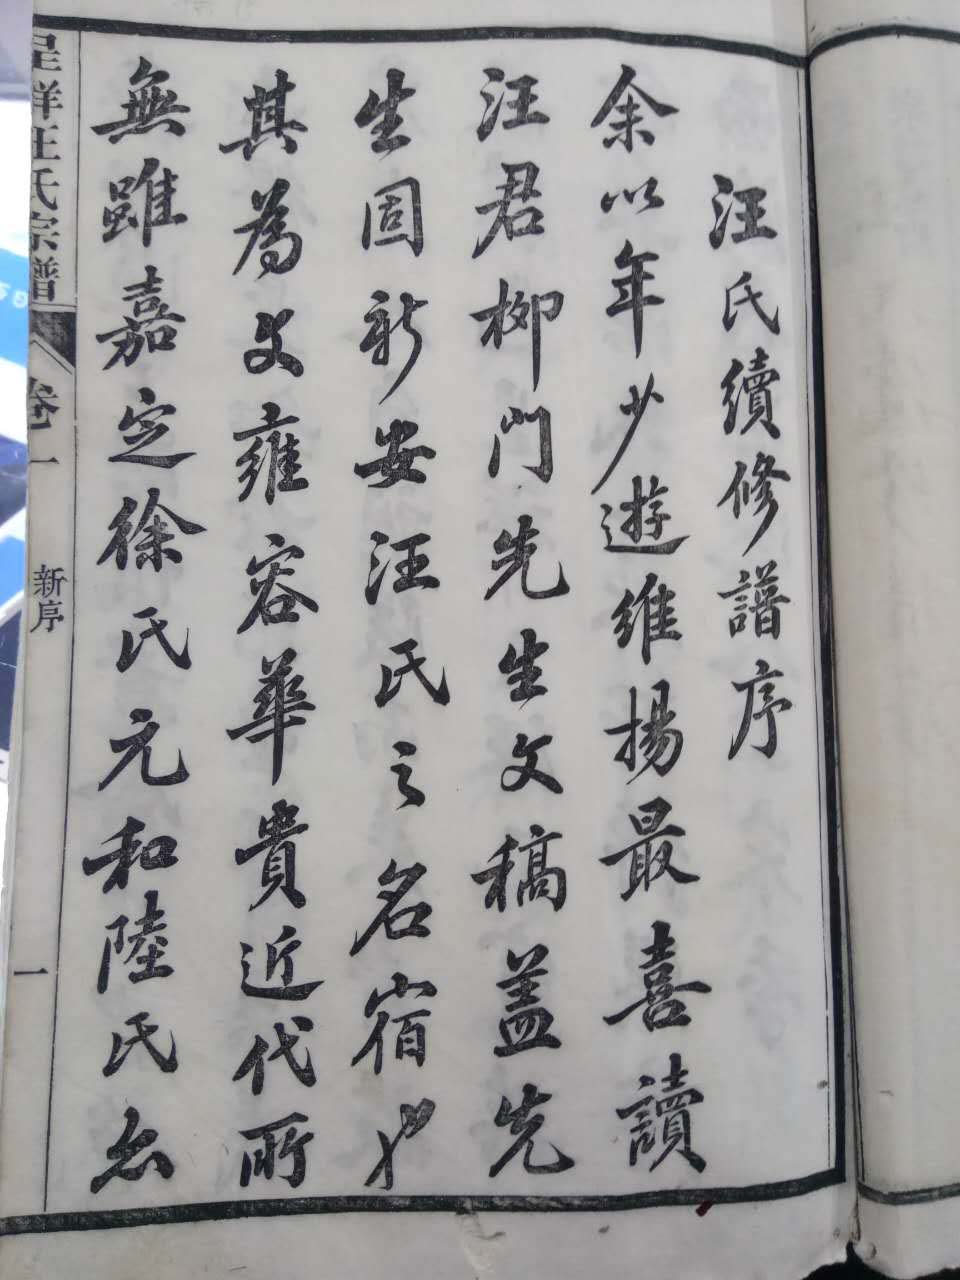 汪氏續修譜序
余以年少遊維揚最喜讀
汪君柳門先生文稿盖先
生固新安汪氏之名宿也
其為文雍容華貴近代所
無雖嘉定徐氏元和陸氏
祥汪氏宗譜 卷一 新序 一